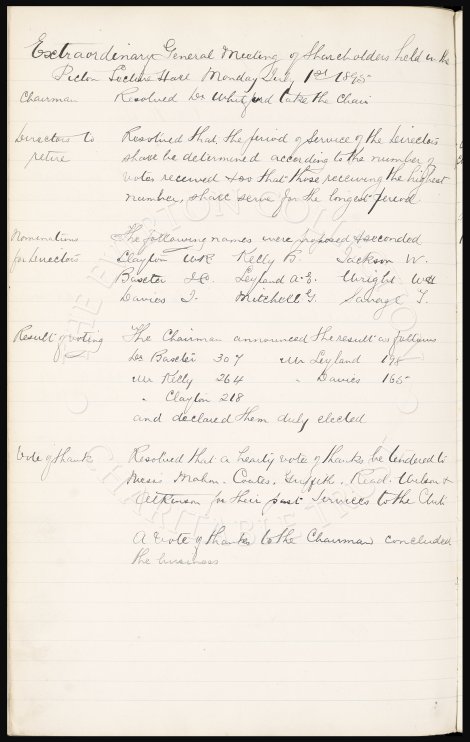 Extraordinary General Meeting of Shareholders held in the
Picton Lecture Hall Monday July 1st 1895
Chairman Resolved Dr Whitford take the Chair
Directors to Resolved that the period of Service of the Directors
retire shall be determined according to the number of
votes received & so that those receiving the highest
number, shall serve for the longest period
Nominations The following names were proposed & seconded
for Directors Clayton W.R. Kelly B. Jackson W.
Baxter J.C. Leyland A.E. Wright W.H.
Davies T. Mitchell G. Savage T.
Result of Voting The Chairman announced the result as follows
Dr Baxter 307 Mr Leyland
Mr Kelly 264 " Davies 165
" Clayton 218
and declared them duly elected
Vote of thanks Resolved that a hearty vote of thanks be tendered to
Messrs Mahon. Coates. Griffith. Read. Wilson &
Atkinson for their past Services to the Club
A vote of thanks to the Chairman concluded
the business
THE EVERTON COLLECTION
CHARITABLE TRUST